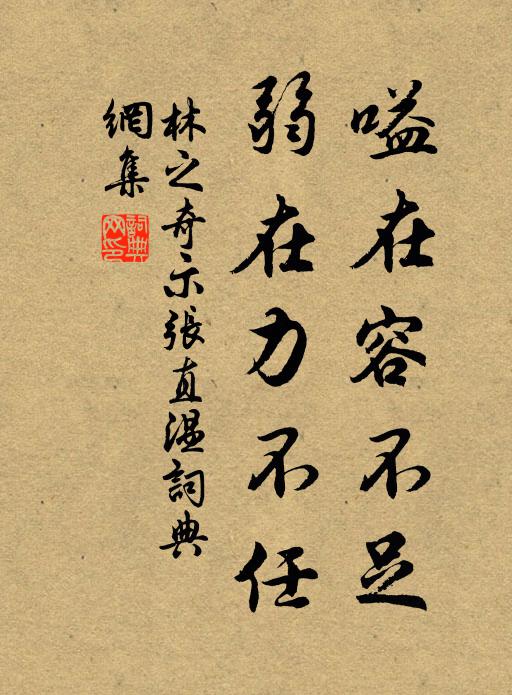 嗌在容不足
弱在力不任
林之奇示張直溫詞典
網集
詞典網印